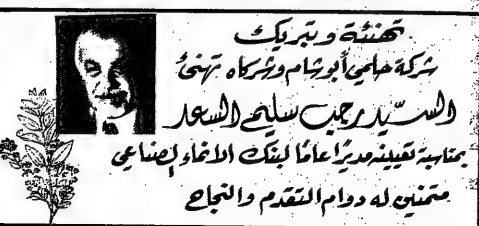 تهنئة وتبريك
شركة حلمي أبو شام وشركاه تهنئ
السيد رجب سليم السعد
بمناسبة تعيينه مديرًا عامًا لبنك الانماء الصناعي
متمنين له دوام التقدم والنجاح